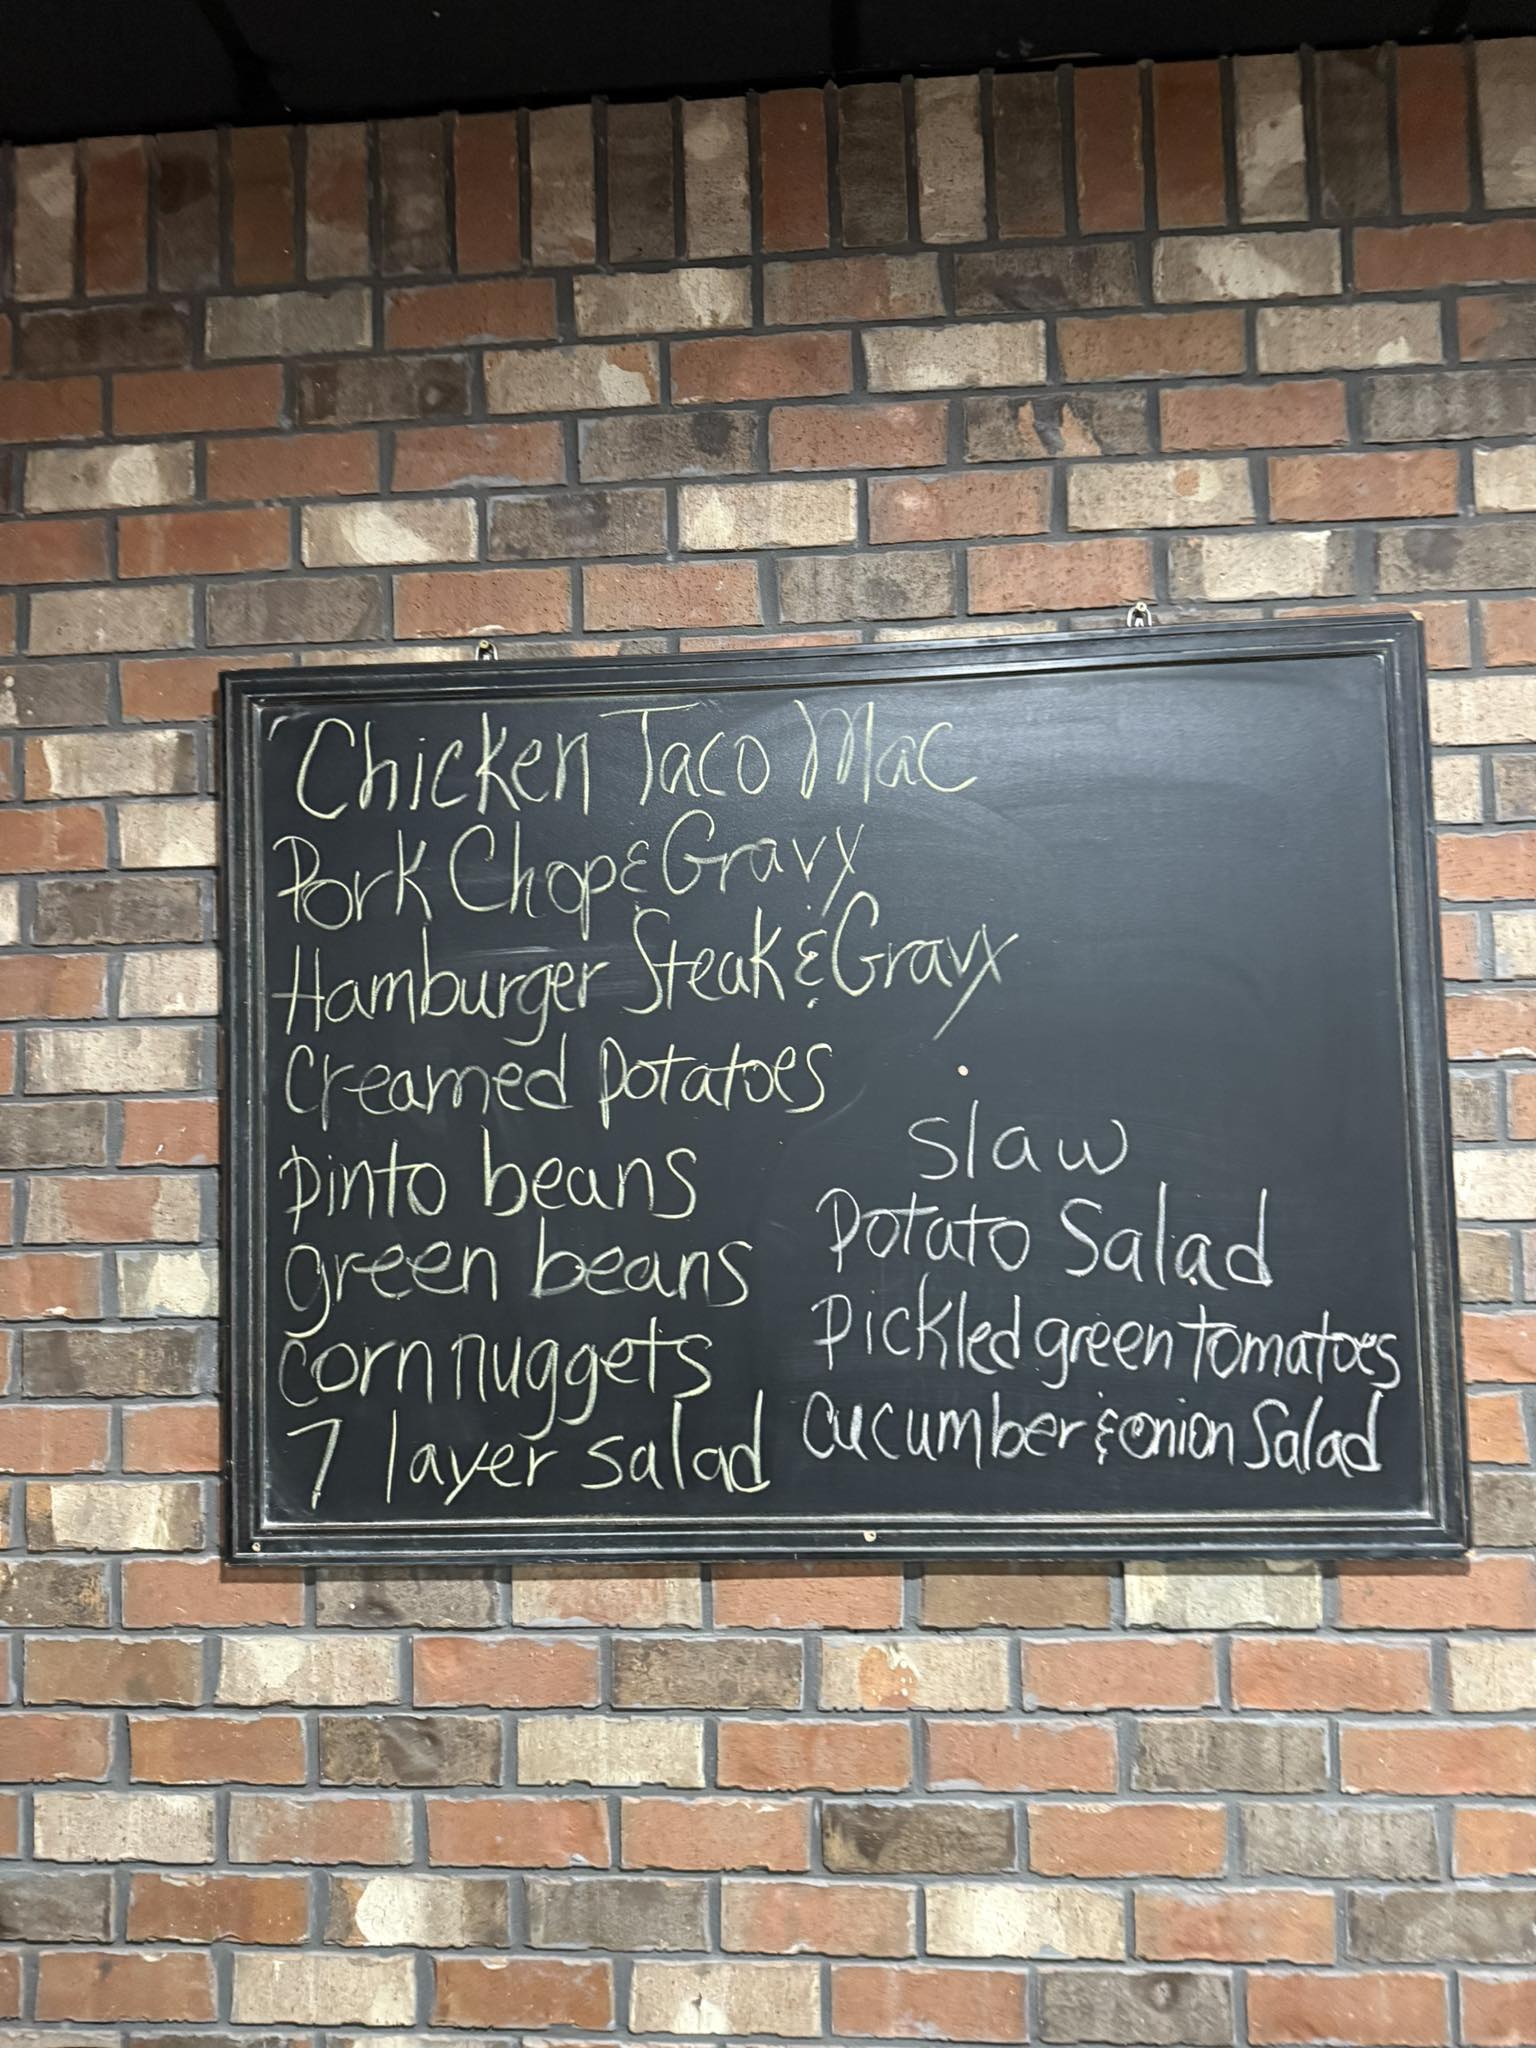 Chicken Taco Mac
Pork Chop & Gravy
Hamburger Steak & Gravy
Creamed Potatoes
pinto beans
green beans
corn nuggets
7 layer salad
slaw
Potato Salad
Pickled green tomatoes
Cucumber & onion Salad